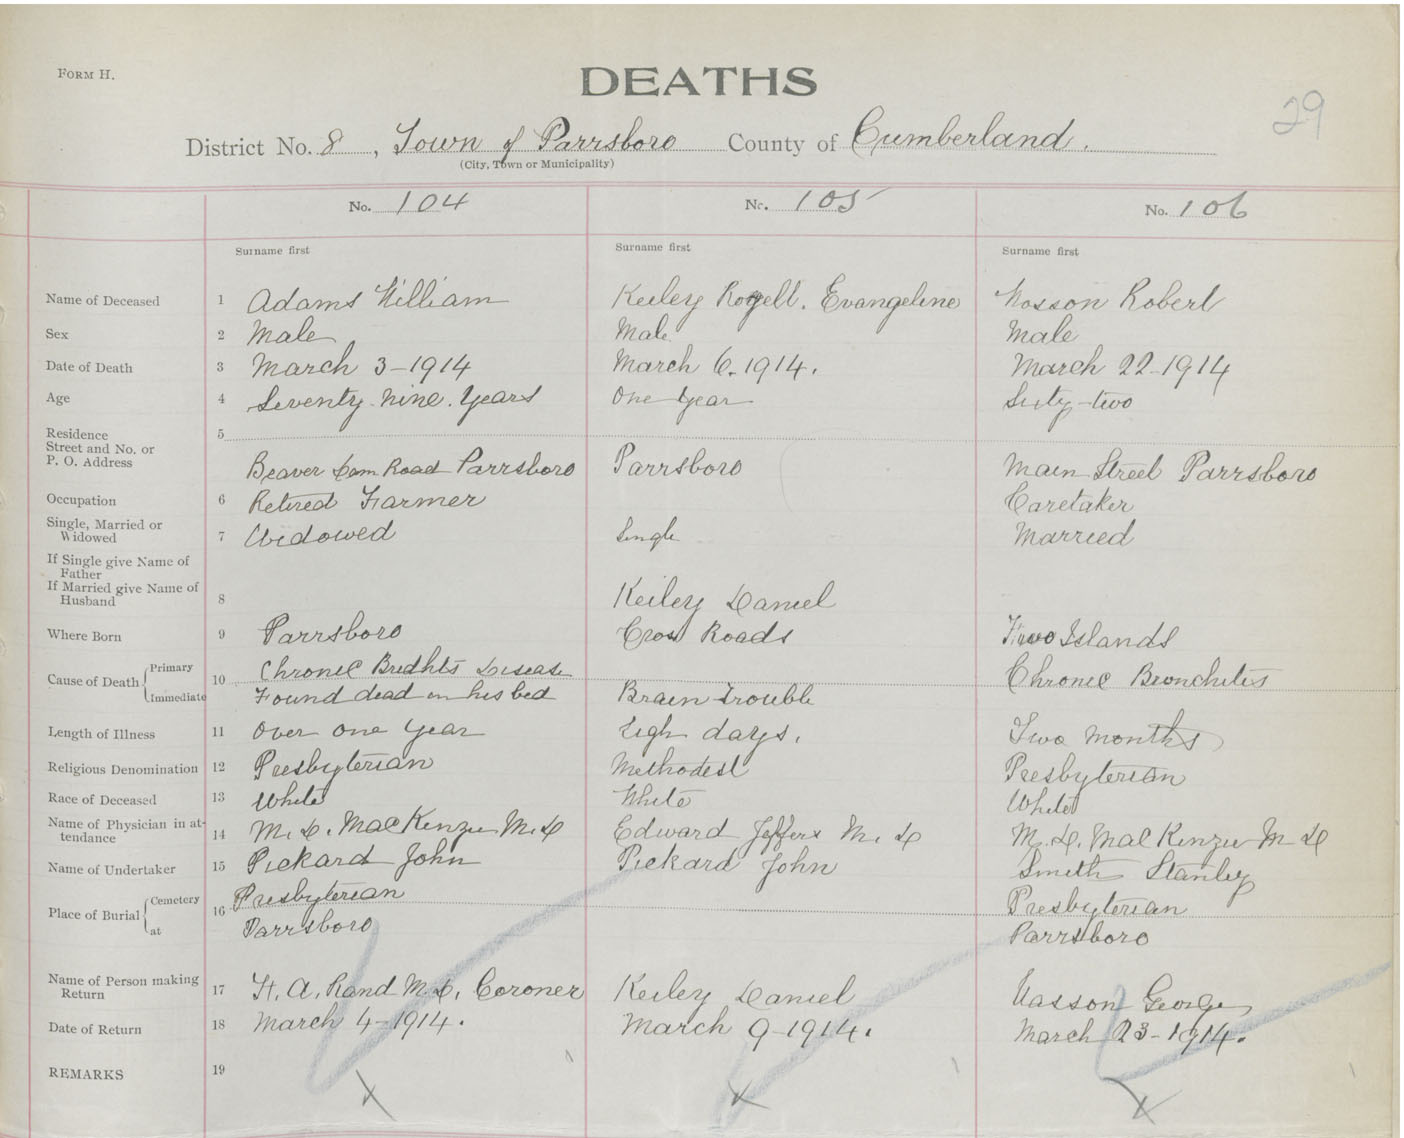 FORM H.
DEATHS
29
District No. 8, Town of Parrsboro County of Cumberland.
(City, Town or Municipality)
No. 104 No. 105 No. 106
Surname first Surname first Surname first
Name of Deceased 1 Adams William Keiley Evangeline Wasson Robert
Sex 2 Male Male Male
Date of Death 3 March 3-1914 March 6. 1914. March 22-1914
Age 4 Seventy-nine. Years One Year Sixty-two
Residence 5
Street and No. or
P. O. Address Beaver Dam Road Parrsboro Parrsboro Main Street Parrsboro
Occupation 6 Retired Farmer Caretaker
Single, Married or
Widowed 7 Widowed Single Married
If Single give Name of
Father
If Married give Name of
Husband 8 Keiley Daniel
Where Born 9 Parrsboro Cross Roads Two Islands
Cause of Death { Primary 10 Chronic Disease Chronic Bronchitis
Immediate Found dead in his bed Brain trouble
Length of Illness 11 Over one year days. Two months
Religious Denomination 12 Presbyterian Methodist Presbyterian
Race of Deceased 13 White White White
Name of Physician in at-
tendance 14 M. D. MacKenzie M. D Edward Jeffers M. D M. D. MacKenzie M D
Name of Undertaker 15 Pickard John Pickard John Smith Stanley
Place of Burial { Cemetery 16 Presbyterian Presbyterian
at Parrsboro Parrsboro
Name of Person making
Return 17 A. Rand M. D. Coroner Keiley Daniel Wasson George
Date of Return 18 March 4-1914. March 9-1914. March 23-1914.
REMARKS 19
x x x